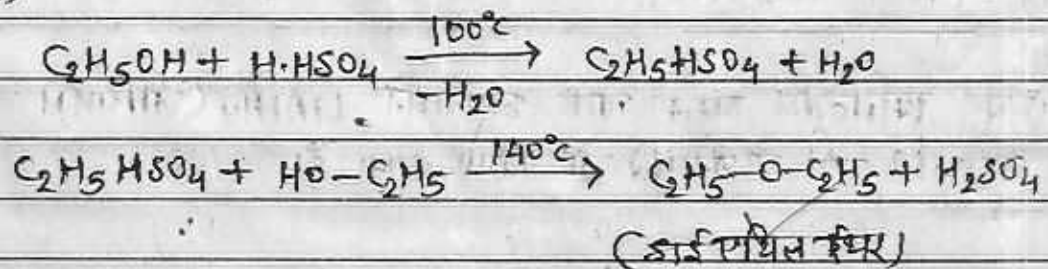 C₂H₅OH + H·HSO₄ —100°C→ / −H₂O C₂H₅HSO₄ + H₂O
C₂H₅HSO₄ + HO–C₂H₅ —140°C→ C₂H₅–O–C₂H₅ + H₂SO₄
(डाई एथिल ईथर)